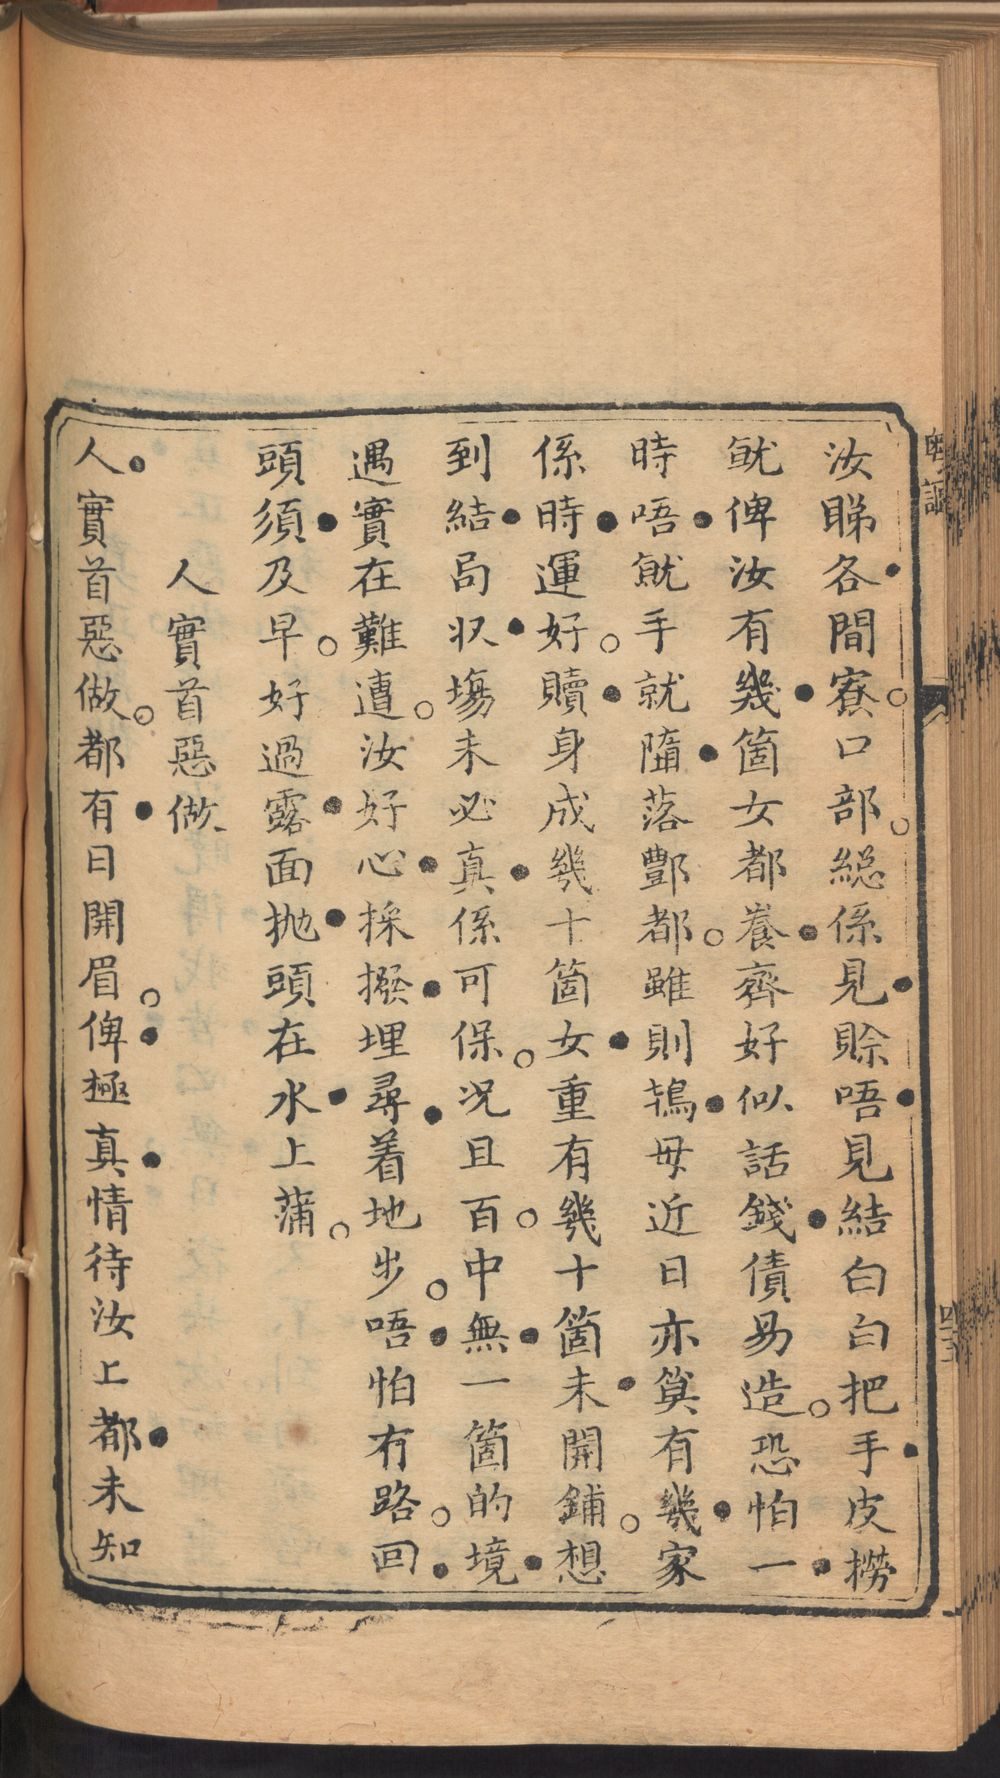 汝睇各間寮口部總係見賒唔見結白白把手皮撈
魷俾汝有幾箇女都養齊好似話錢債易造恐怕一
時唔魷手就墮落酆都雖則鴇母近日亦算有幾家
係時運好贖身成幾十箇女重有幾十箇未開鋪想
到結局收塲未必真係可保况且百中無一箇的境
遇實在難遭汝好心採撥埋尋着地步唔怕冇路回
頭須及早好過露面抛頭在水上蒲
人實首惡做
人實首惡做都有日開眉俾極真情待汝上都未知